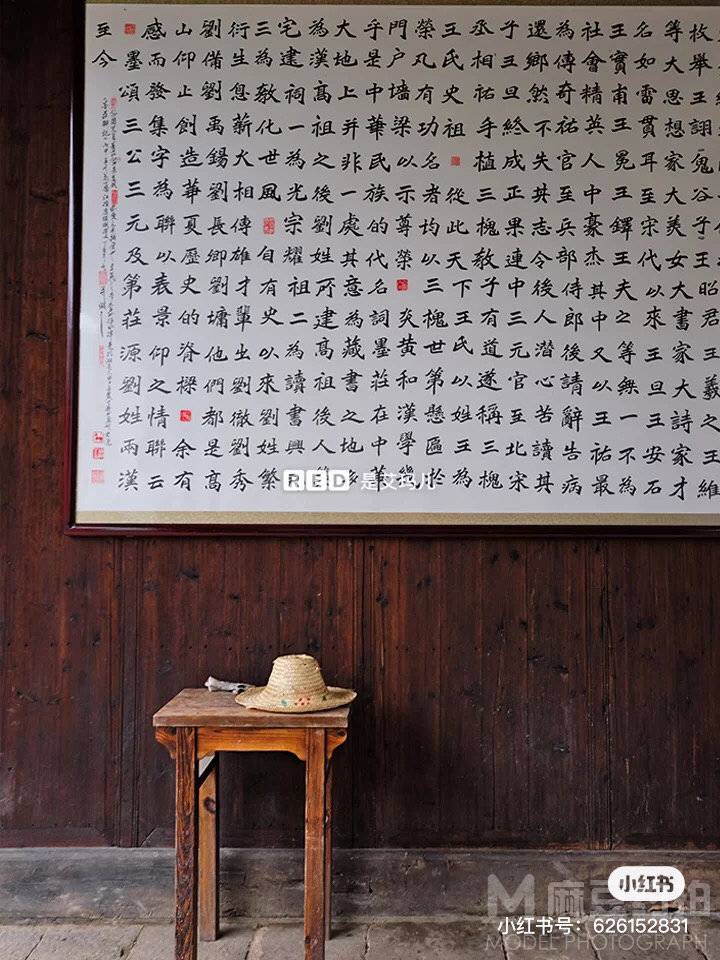 枚舉王詡鬼谷子王昭君王羲之王維
等大思想家大美女大書家大詩家才
名如雷貫耳至宋代以來王旦王安石
王實甫王冕王鐸王夫之等無一不為
社會精英人中豪杰其中又以王祐最
為傳奇祐官至兵部侍郎後請辭告病
還鄉然不失其志令後人潛心苦讀其
子王旦終成正果連中三元官至北宋
丞相祐手植三槐教子有道遂稱王三槐
王氏史祖從此天下王氏以姓王為
榮凡有功名者均以三槐世第懸匾於
門户墻梁以示尊榮炎黃和漢學幾
乎是中華民族的代名詞墨莊在中華
大地上并非一處其意為藏書之地多
為漢高祖之後劉姓所建高祖後人
宅建祠一為光宗耀祖二為讀書興
三為教化世風自有史以來劉姓繁
衍生息薪火相傳雄才輩出劉徹劉秀
劉備劉禹錫劉長卿劉墉他們都是高
山仰止創造華夏歷史的脊樑余有
感而發集字為聯以表景仰之情聯云
墨頌三公三元及第莊源劉姓兩漢
至今
RED 是艾玛儿
小红书
小红书号：626152831
MODEL PHOTOGRAPH